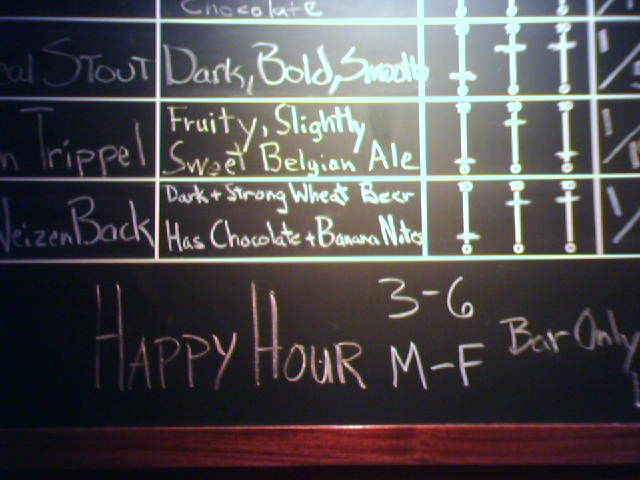 Chocolate
Stout Dark, Bold, Smooth
Trippel Fruity, Slightly
Sweet Belgian Ale
WeizenBack Dark + Strong Wheat Beer
Has Chocolate + Banana Notes
HAPPY HOUR 3-6
M-F Bar Only